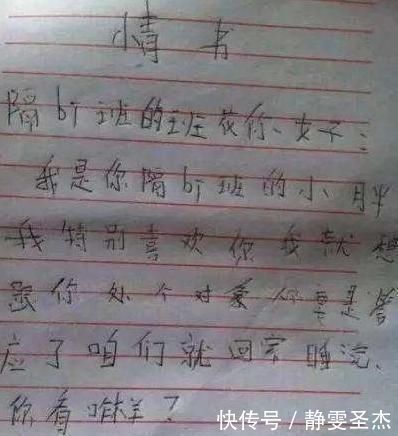 情书
隔bi班的班花你、女子:
我是你隔bi班的小、胖
我特别喜欢你我就想
跟你处个对象你要是答
应了咱们就回家睡觉、
你看咋样?
快传号/静雯圣杰